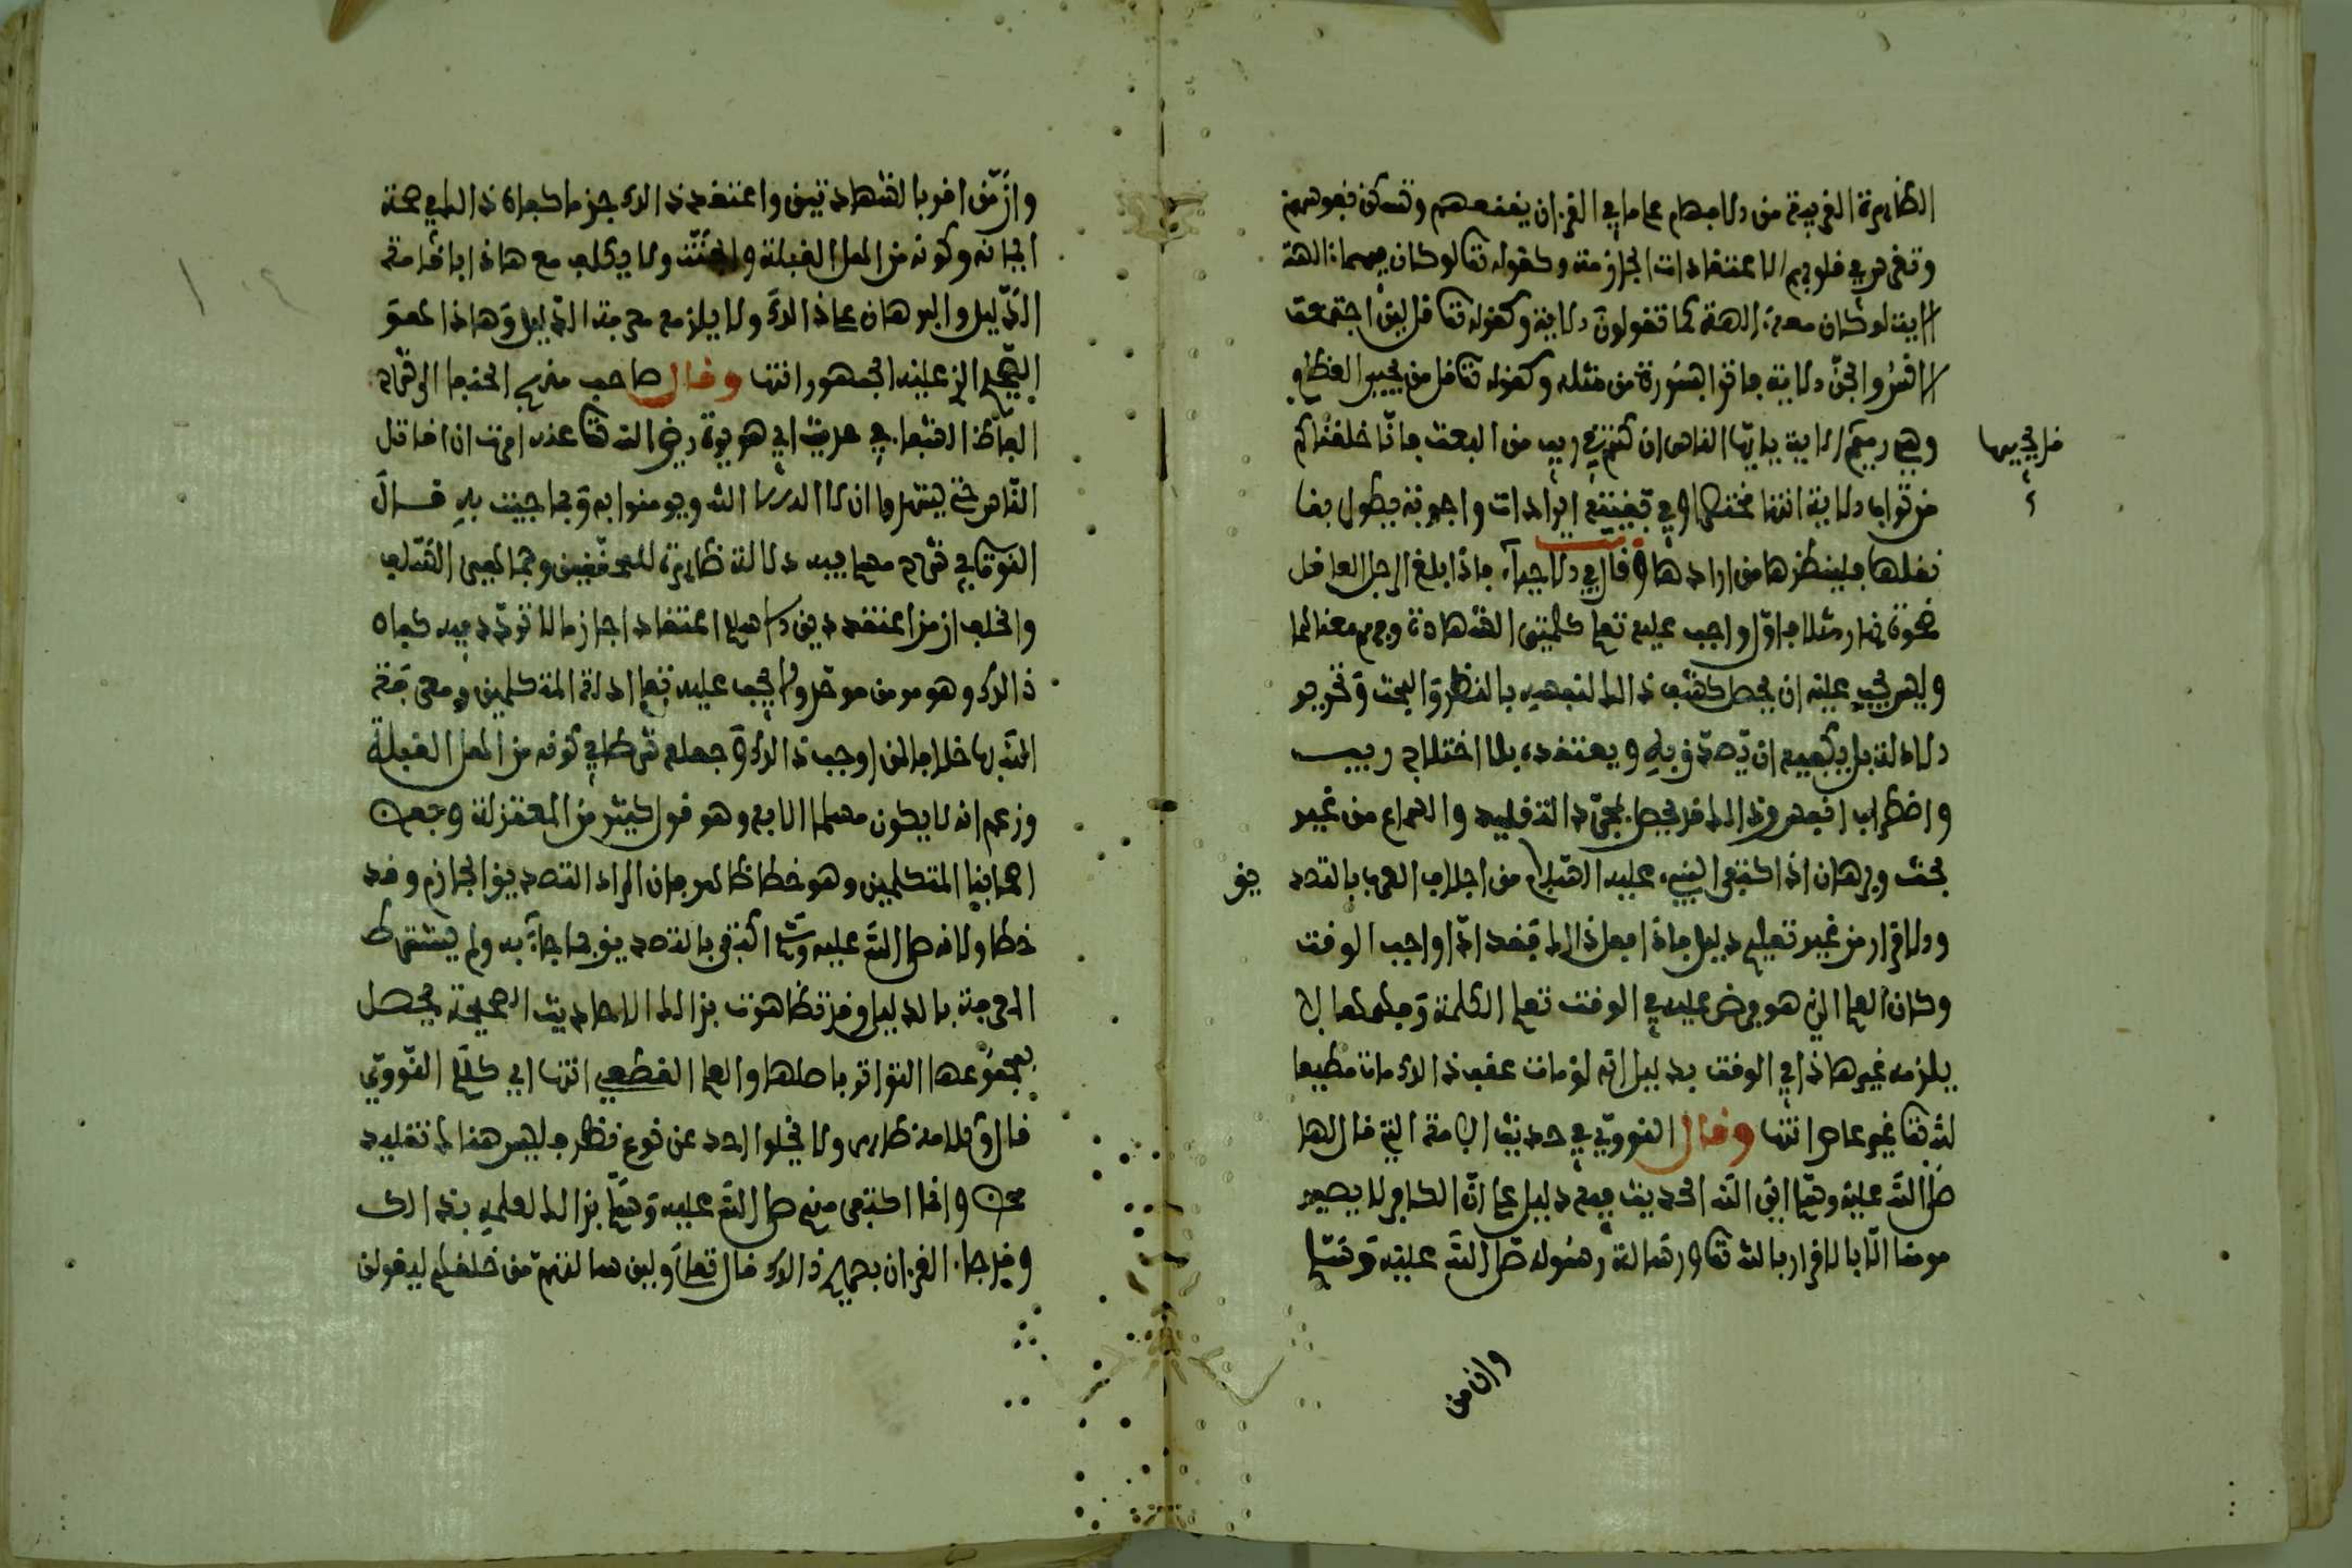 الظاهرة القريبة من الافهام على ما في القرءان يقنعهم وتسكن نفوسهم
وتغرس في قلوبهم الاعتقادات الجازمة وكقوله تعالى لو كان فيهما ءالهة
الاية لو كان معه ءالهة كما تقولون الاية وكقوله تعالى قل لين اجتمعت
الانس والجن الاية فاتوا بسورة من مثله وكقوله تعالى قل من يحيي العظام
وهي رميم الاية يايها الناس ان كنتم في ريب من البعث فانا خلقناكم
قل يحييها
من تراب الاية انتهى مختصرا وفي قضيته ايرادات واجوبة يطول بنا
نقلها فلينظرها من ارادها وقال في الاحياء فاذا بلغ الرجل العاقل
ضحوة نهار مثلا فاول واجب عليه تعلم كلمتي الشهادة وفهم معناهما
وليس يجب عليه ان يحصل كشف ذالك لنفسه بالنظر والبحث وتحرير
الادلة بل يكفيه ان يصدق به ويعتقده بلا اختلاج ريب
واضطراب نفس وذالك قد يحصل بمجرد التقليد والسماع من غير
بحث وبرهان اذ اكتفى النبيء عليه السلام من اجلاف العرب بالتصد
يق
والاقرار من غير تعليم دليل فاذا فعل ذالك فقد ادا واجب الوقت
وكان العلم الذي هو فرض عليه في الوقت تعلم الكلمة وفهمها لا
يلزمه غير هاذا في الوقت بدليل انه لو مات عقب ذالك مات مطيعا
لله تعالى غير عاص انتهى وقال النووي في حديث الامة التي قال لها
صلى الله عليه وسلم اين الله الحديث فيه دليل على ان الكافر لا يصير
مومنا الا بالاقرار بالله تعالى ورسالة رسوله صلى الله عليه وسلم
وان من
وان من اقر بالشهادتين واعتقد ذالك جزما كفاه ذالك في صحة
ايمانه وكونه من اهل القبلة والجنة ولا يكلف مع هاذا باقامة
الدليل والبرهان على ذالك ولا يلزمه معرفة الدليل وهاذا هو
الصحيح الذي عليه الجمهور انتهى وقال صاحب منهج
في حديث ابي هريرة رضي الله تعالى عنه امرت ان اقاتل
الناس حتى يشهدوا ان لا اله الا الله ويومنوا بي وبما جيت به قال
النووي في شرح مسلم فيه دلالة ظاهرة للمحققين وجماهير السلف
والخلف ان من اعتقد دين الاسلام اعتقادا جازما لا تردد فيه كفاه
ذالك وهو مومن موحد ولا يجب عليه تعلم ادلة المتكلمين ومعرفة
الله بها خلافا لمن اوجب ذالك وجعله شرطا في كونه من اهل القبلة
وزعم انه لا يكون مسلما الا به وهو قول كثير من المعتزلة وبعض
اصحابنا المتكلمين وهو خطا ظاهر فان المراد التصديق الجازم وقد
حصل ولانه صلى الله عليه وسلم اكتفى بالتصديق بما جاء به ولم يشترط
المعرفة بالدليل وقد تظاهرت بذالك الاحاديث الصحيحة يحصل
بمجموعها التواتر باصلها والعلم القطعي انتهى اي كلام النووي
ولا يخلوا احد عن نوع نظر فليس هنالك تقليد
محض وانما اكتفى منهم صلى الله عليه وسلم بذالك لعلمه بذالك
وقد جاء القرءان بصحيح ذالك قال تعالى ولين سالتهم من خلقهم ليقولن